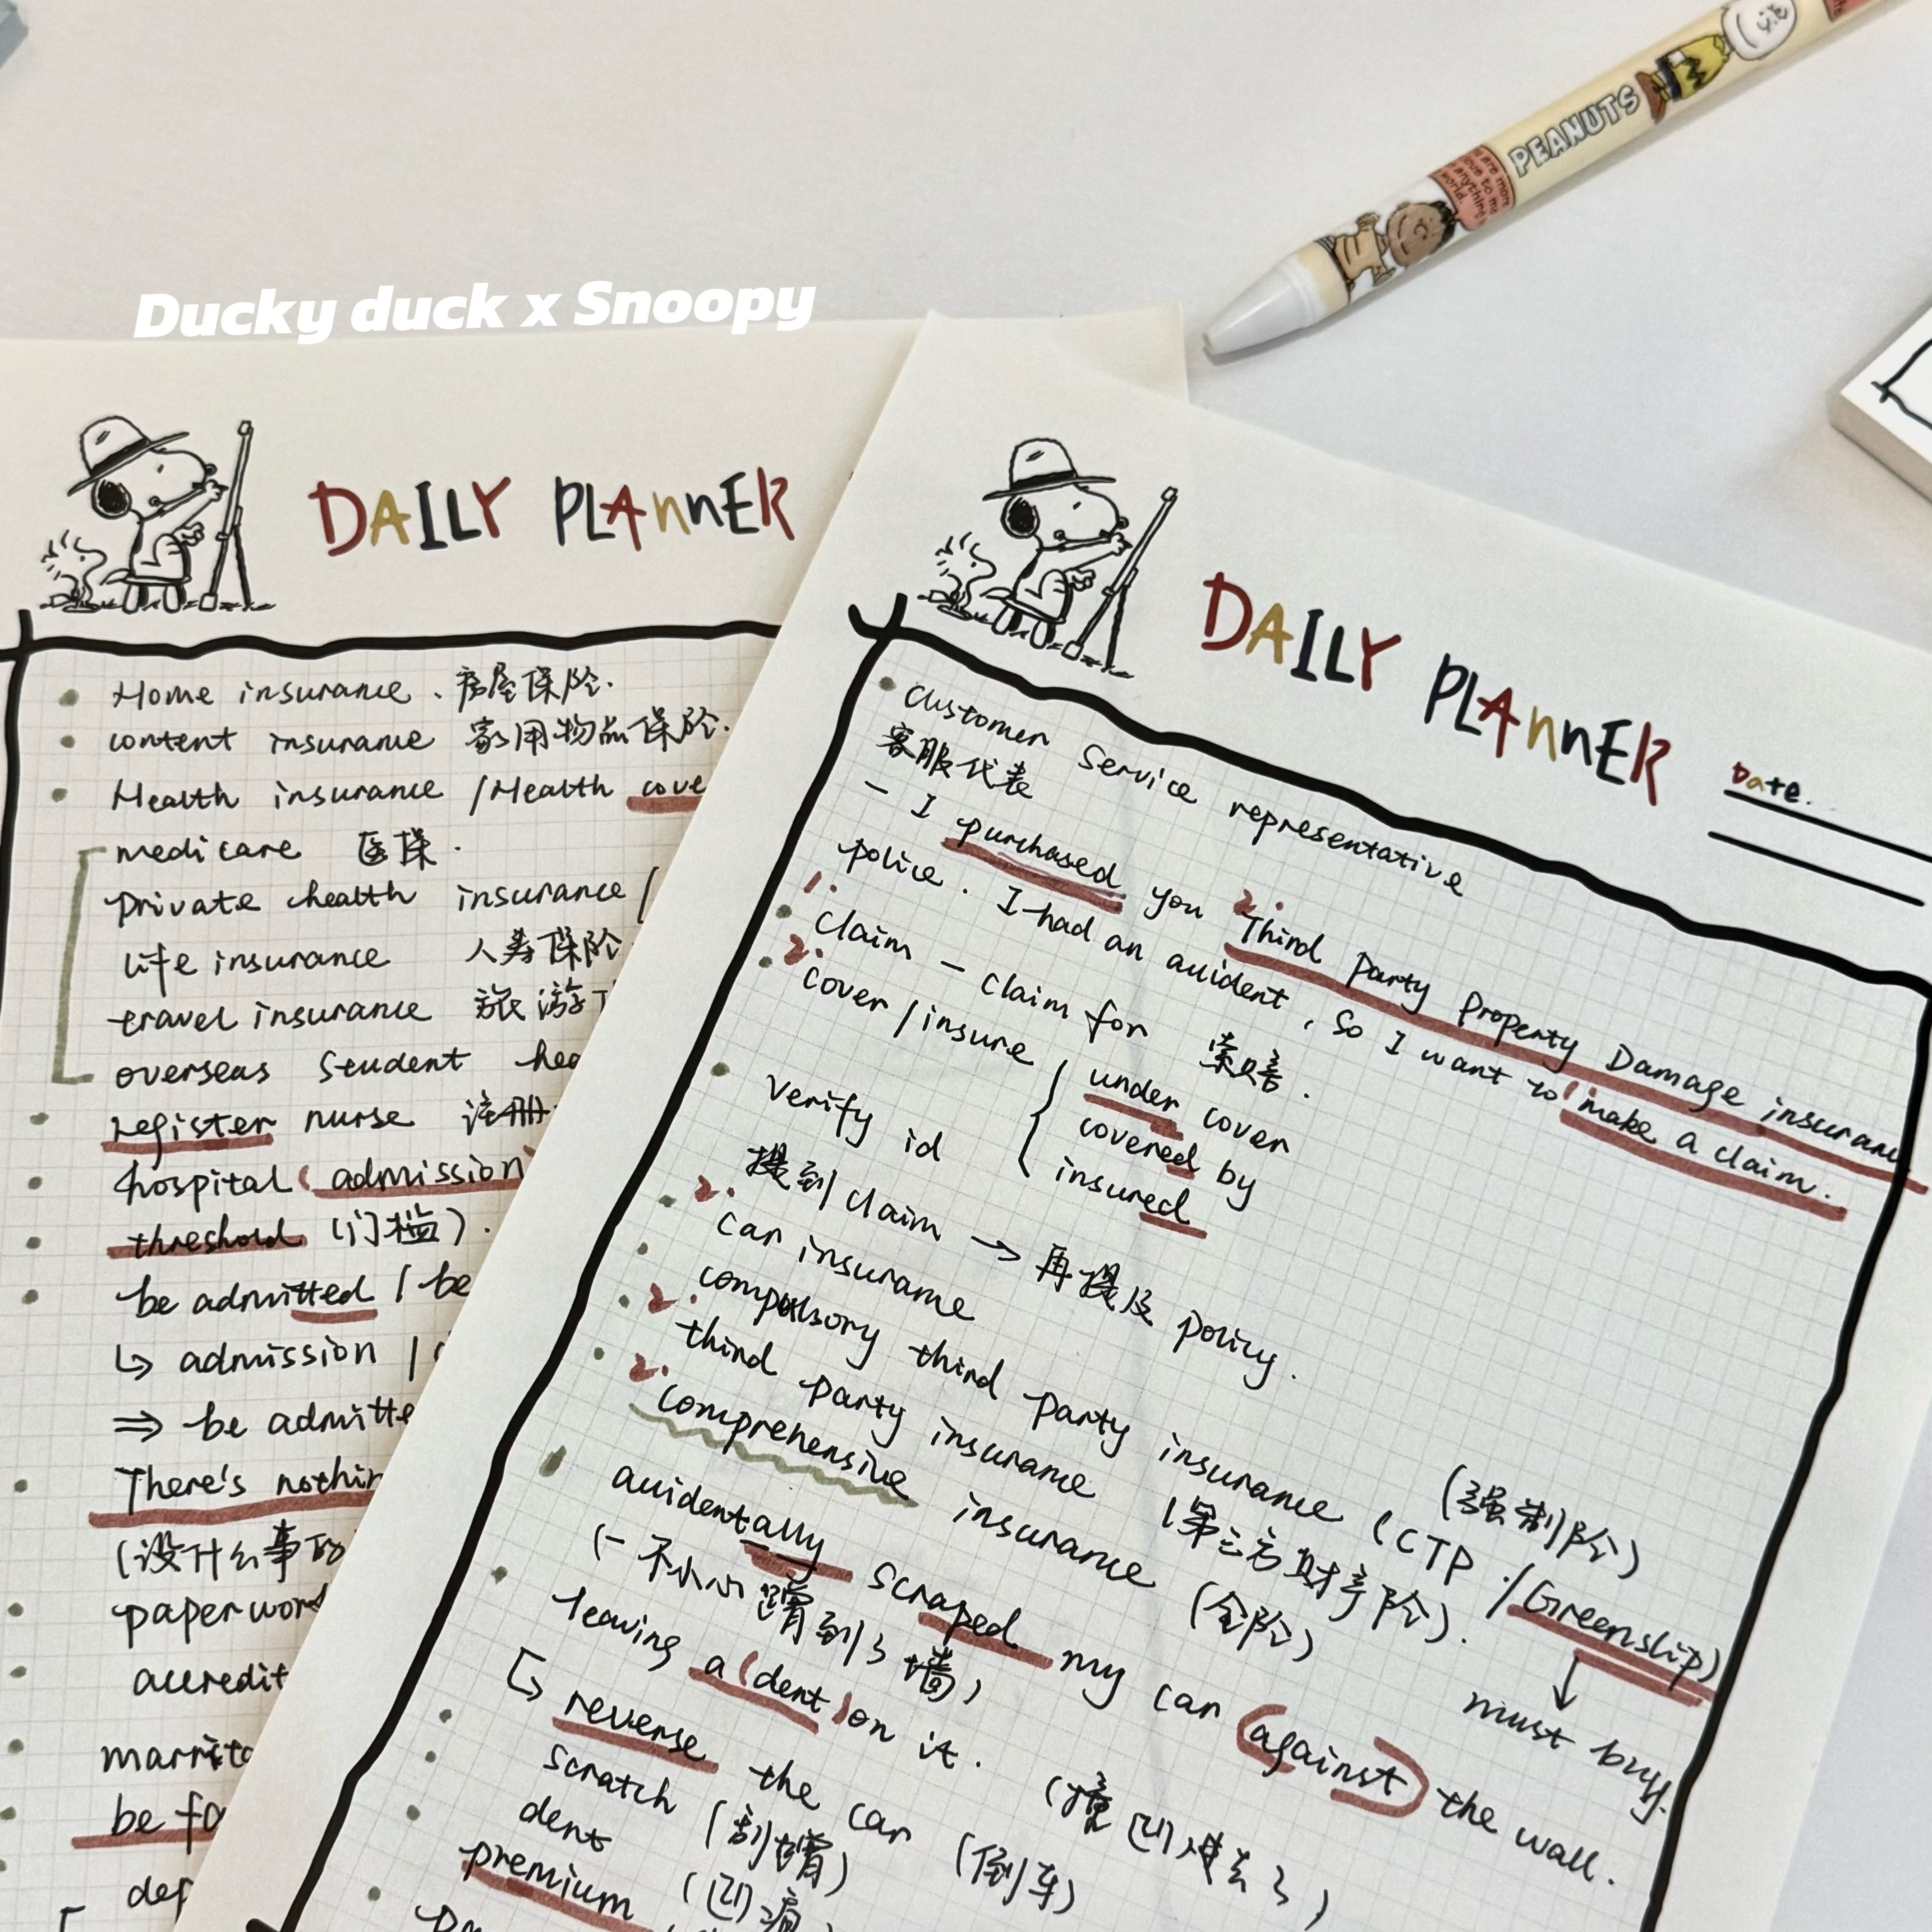 PEANUTS
Ducky duck x Snoopy
DAILY PLAnnER
Home insurance. 房屋保险.
content insurance 家用物品保险.
Health insurance / Health cove
medicare 医保.
private health insurance /
life insurance 人寿保险
travel insurance 旅游
overseas student hea
register nurse 注册
hospital (admission)
threshold (门槛).
be admitted / be
↳ admission /
⇒ be admitte
There's nothin
(没什么事
paperwor
accredit
be fo
DAILY PLAnnER
Date.
customer service representative
客服代表
- I purchased you 2. Third Party Property Damage insuranc
police. I had an accident, so I want to 1. make a claim.
1. claim - claim for 索赔.
2. cover / insure { under cover
covered by
insured
verify id
提到 claim → 再提及 policy.
2. car insurance
compulsory third party insurance (CTP / Greenslip) (强制险)
must buy.
2. third party insurance (第三方财产险).
2. comprehensive insurance (全险)
accidentally scraped my car (against) the wall.
(一不小心蹭到了墙)
leaving a (dent) on it. (撞凹进去了)
↳ reverse the car (倒车)
scratch (割蹭)
dent (凹痕)
premium